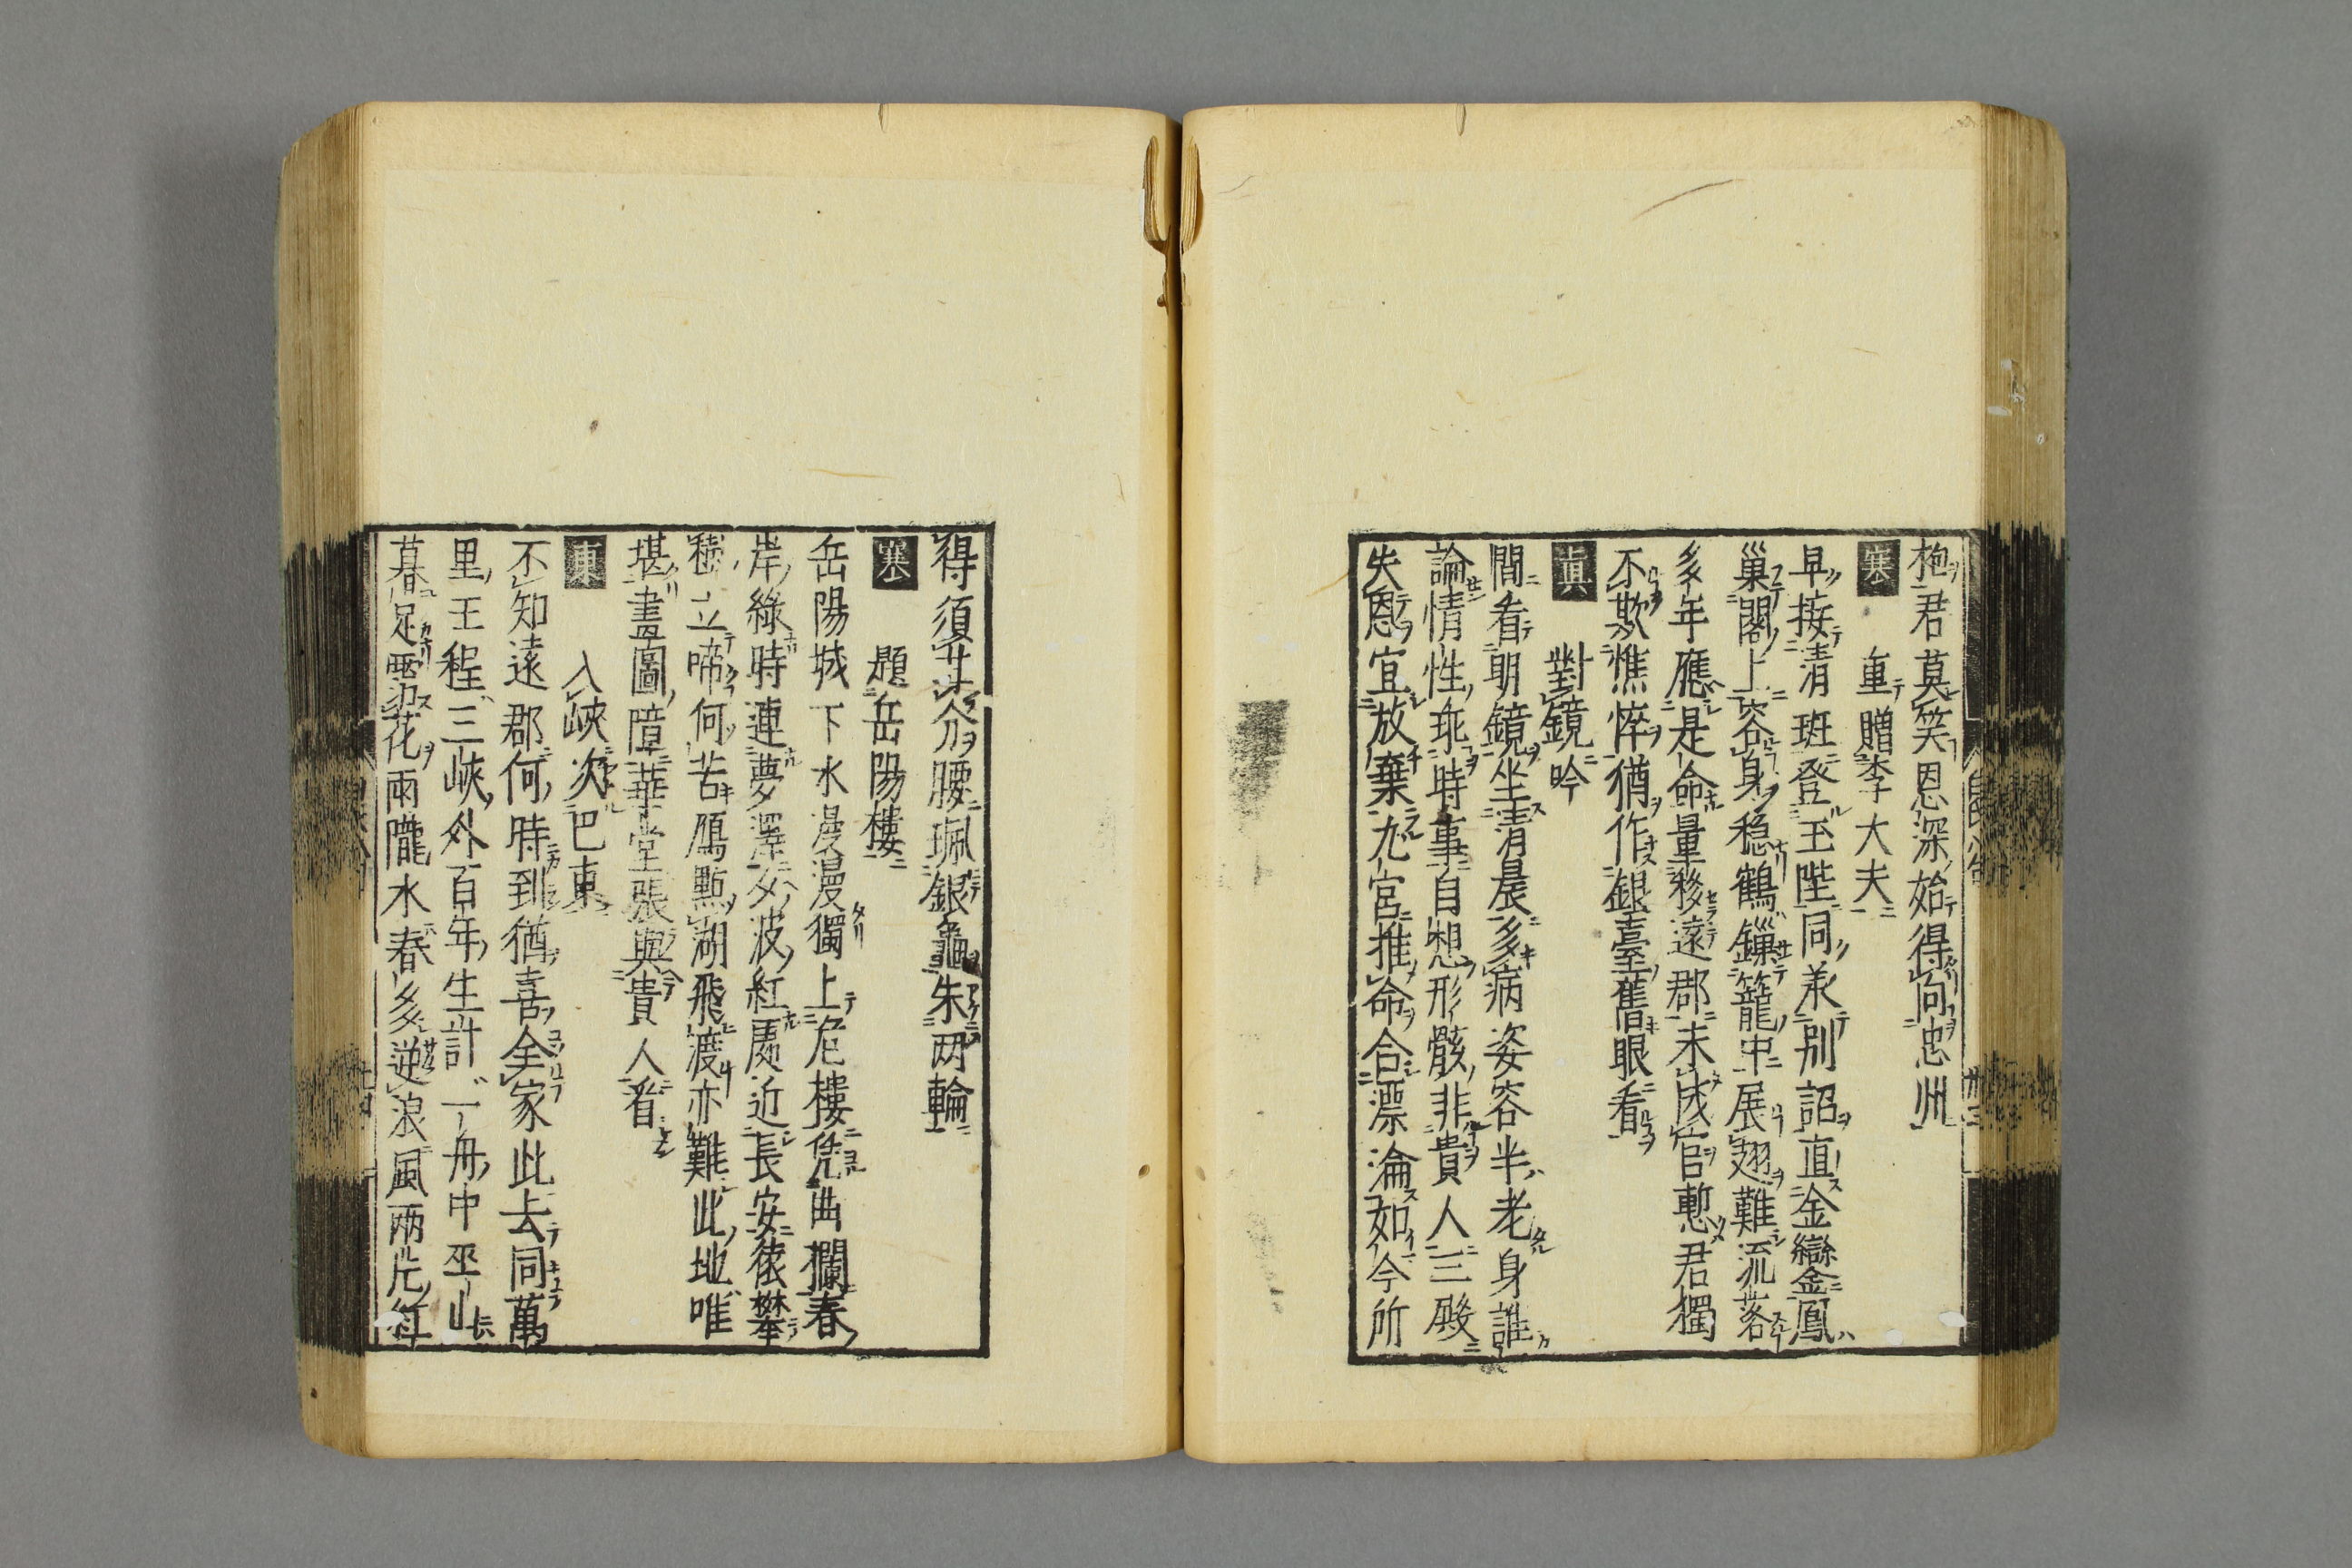 枹君莫笑恩深始得向忠州
寒 重贈李大夫
早接清班登玉陛同羕別詔直金鑾金鳳
巢閣上容身穏鶴鏁籠中展翅難流落
多年應是命量移遠郡未成官慙君獨
不欺憔悴猶作銀臺舊眼看
真 對鏡吟
間看明鏡坐清晨多病姿容半老身誰
論情性乖時事自想形骸非貴人三殿
失恩宜放棄九宮推命合漂淪如今所
得須甘分腰珮銀龜朱两輪
寒 題岳陽樓
岳陽城下水漫漫獨上危樓凭曲欄春
岸綠時連夢澤夕波紅處近長安猿攀
樹立啼何苦鴈點湖飛渡亦難此地唯
堪畫圖障華堂張與貴人看
東 入峽次巴東
不知遠郡何時到猶喜全家此去同萬
里王程三峽外百年生計一舟中巫山
暮足霑花雨隴水春多逆浪風兩片紅